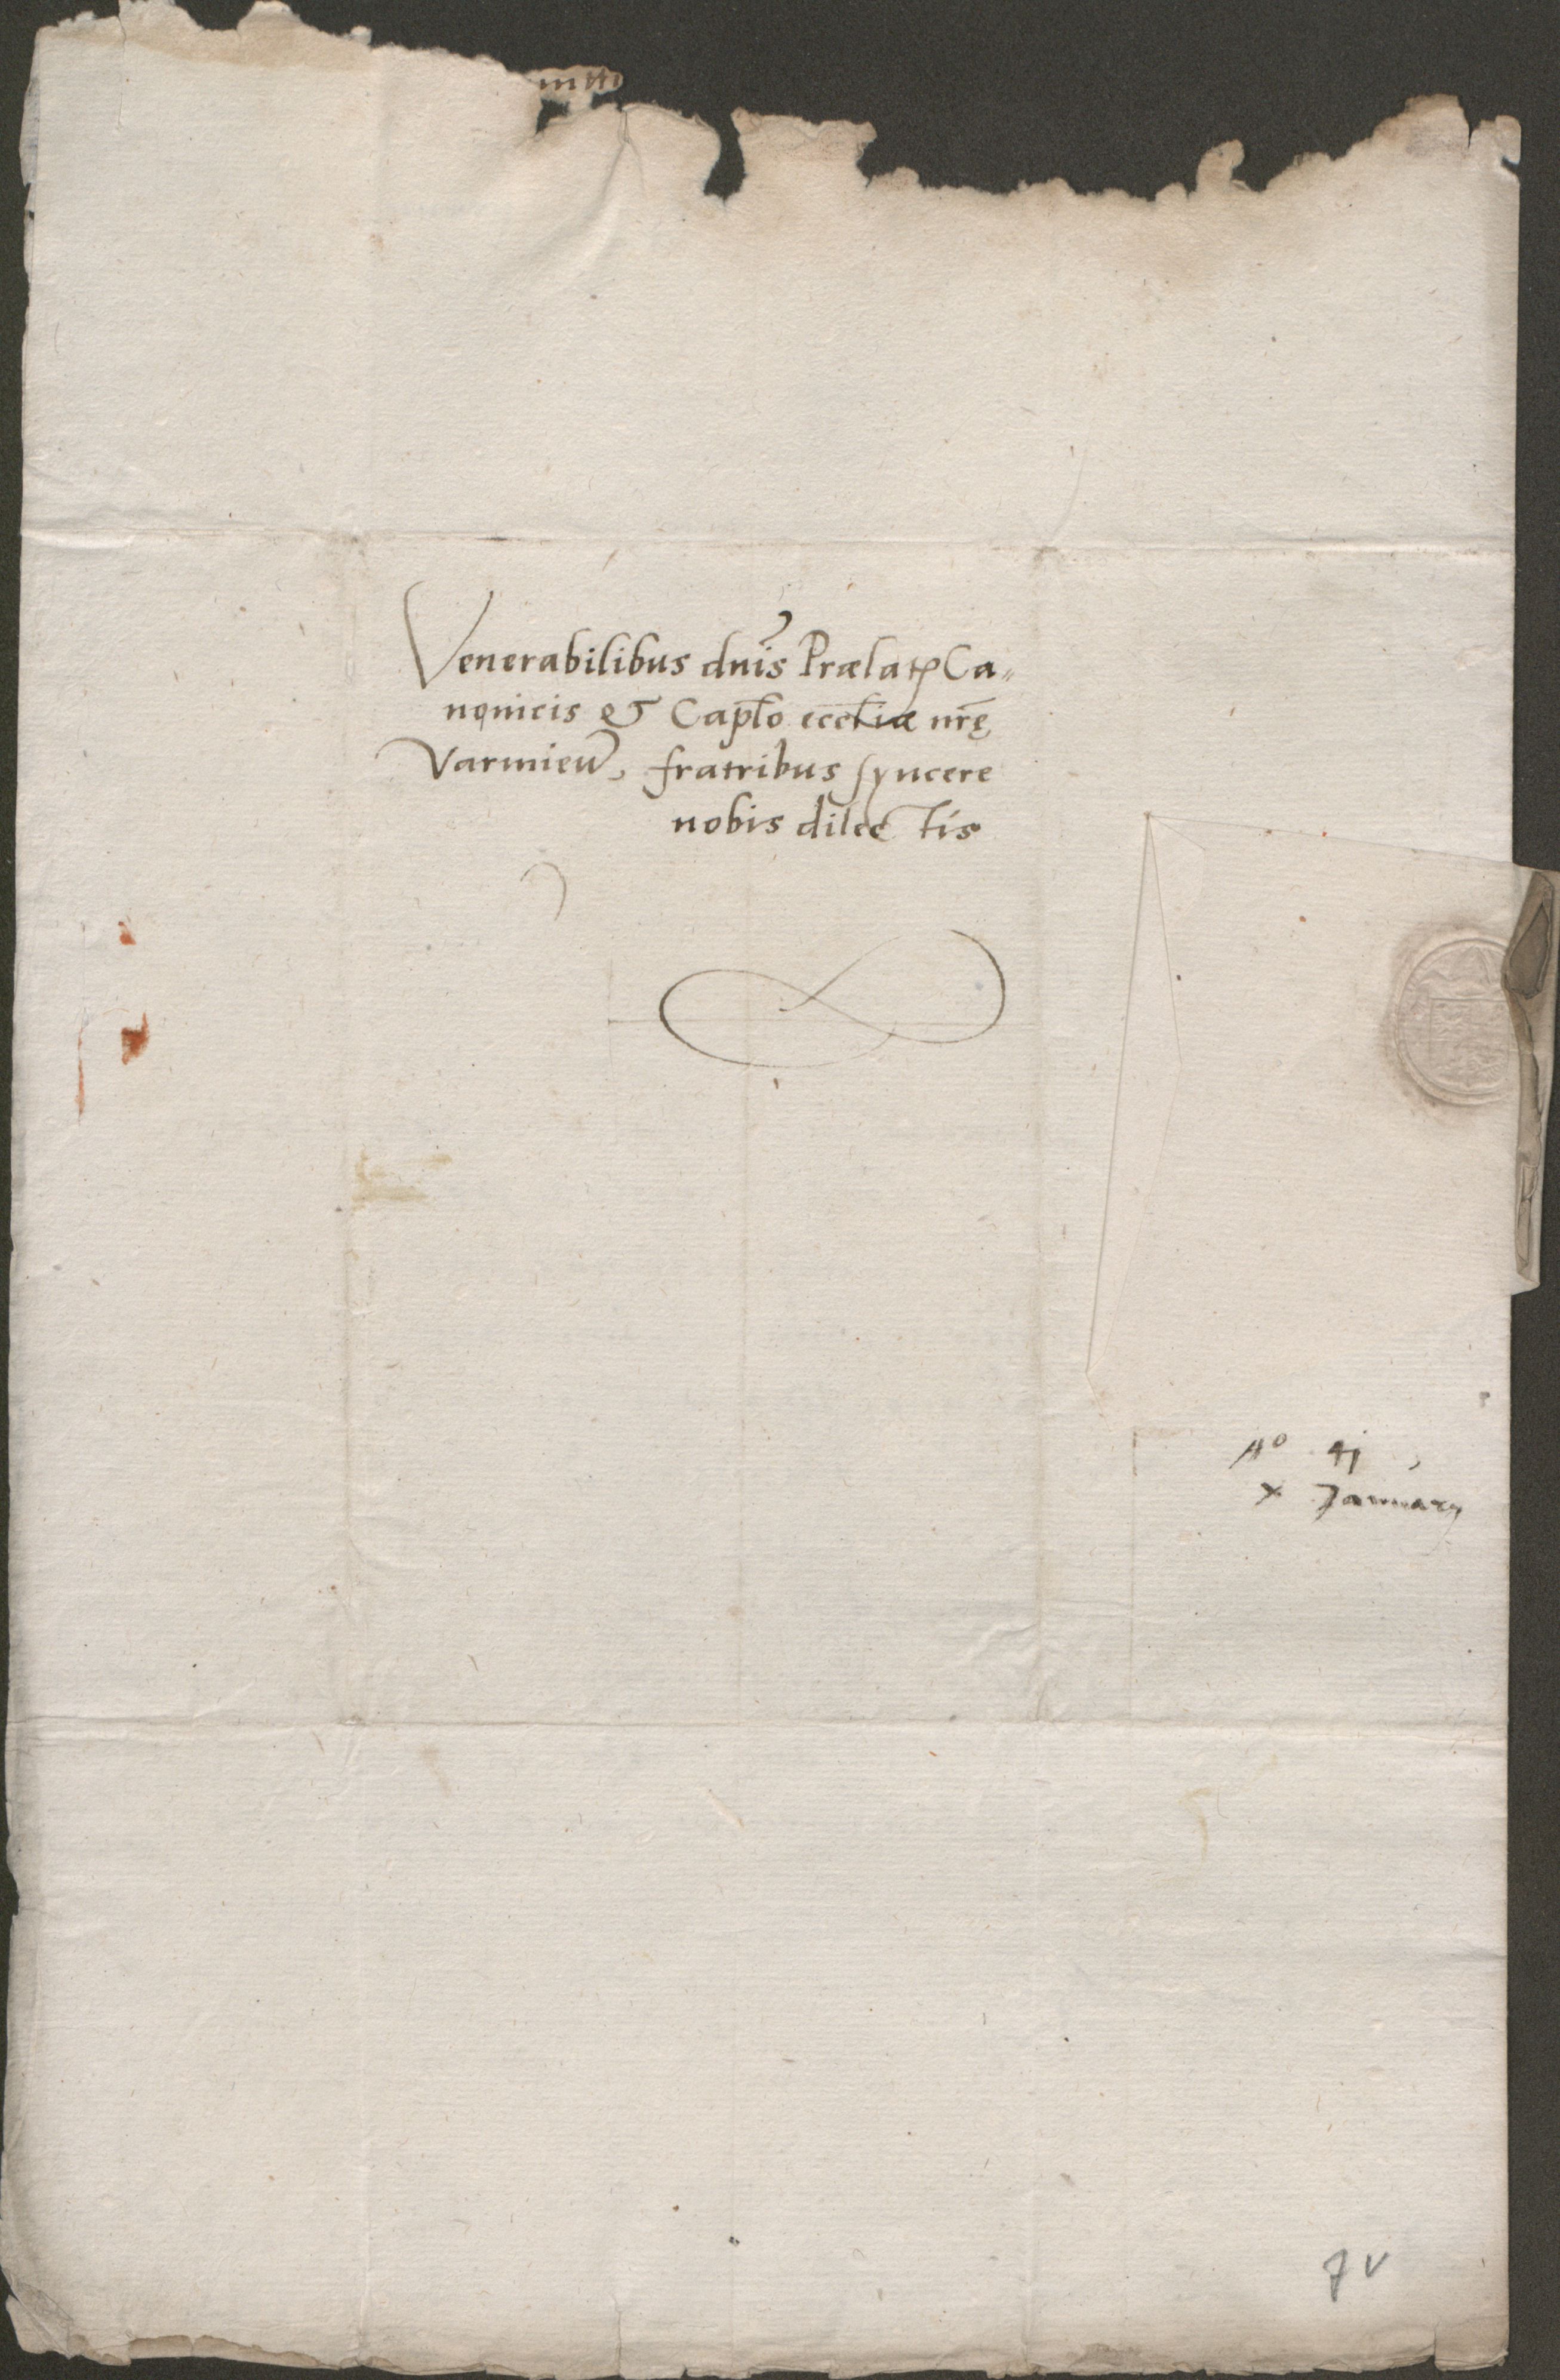 Venerabilibus dnis Prælatꝭ Ca⸗
nonicis & Capło eccłiæ nrę̃
Varmieñ, fratribus syncere
nobis dilectis
Aº 41
x Januarij
7 v